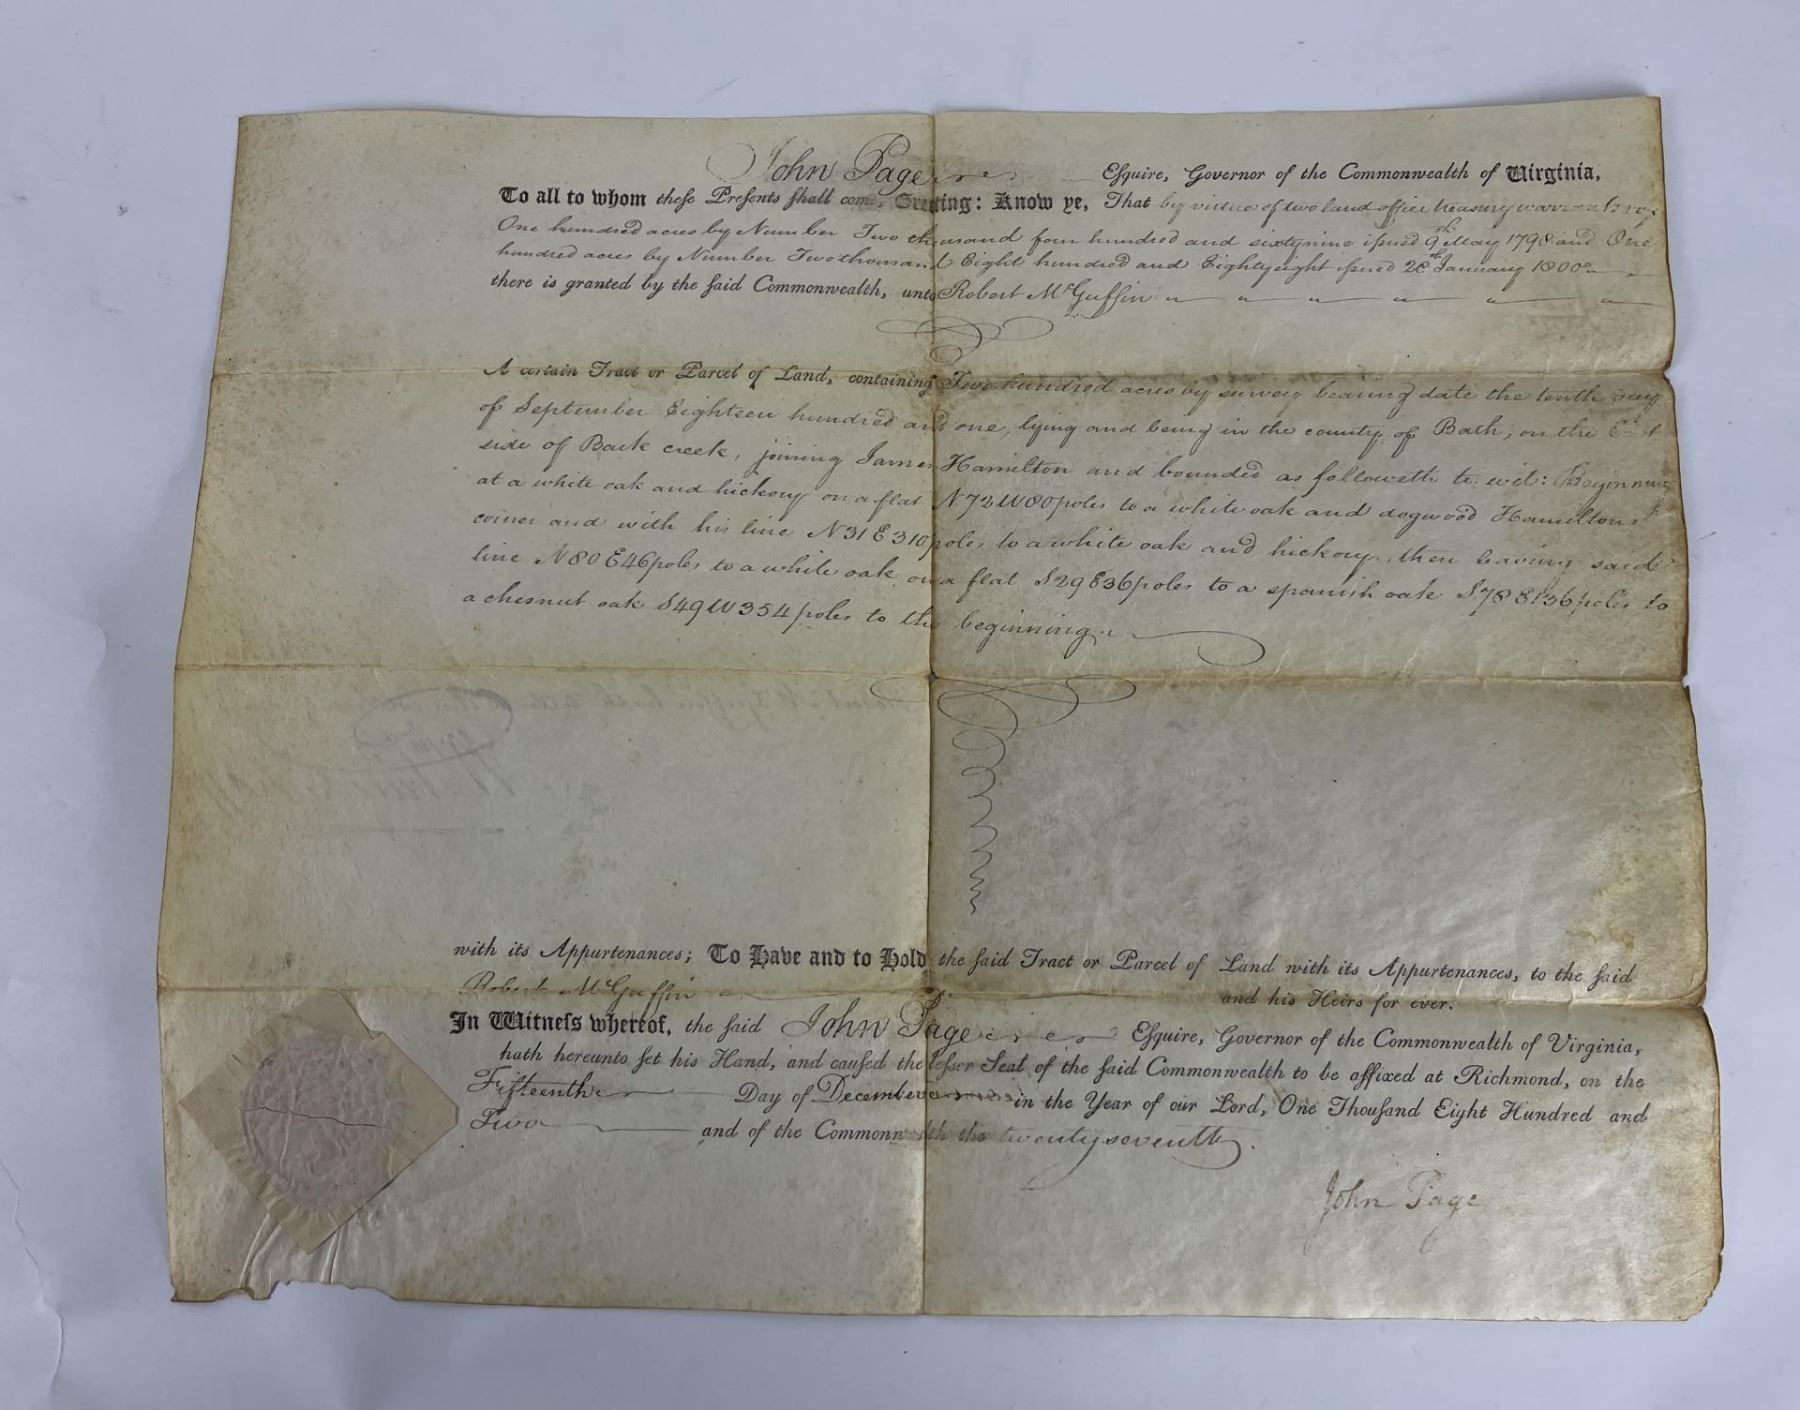 John Page Esquire, Governor of the Commonwealth of Virginia,
To all to whom these Presents shall come Greeting: Know ye, That by virtue of two land office treasury warrants
One hundred acres by Number Two thousand four hundred and sixtynine issued 9th May 1798 and One
hundred acres by Number Two thousand Eight hundred and Eightyeight issued 28th January 1800
there is granted by the said Commonwealth, unto Robert McGuffin
A certain Tract or Parcel of Land, containing Two hundred acres by survey bearing date the tenth day
of September Eighteen hundred and one, lying and being in the county of Bath, on the East
side of Back creek, joining James Hamilton and bounded as followeth to wit: Beginning
at a white oak and hickory on a flat N72W80poles to a white oak and dogwood Hamiltons
corner and with his line N31E310poles to a white oak and hickory, then leaving said
line N80E46poles to a white oak on a flat S29E36poles to a spanish oak S78E136poles to
a chesnut oak S49W354poles to the beginning.
with its Appurtenances; To Have and to Hold the said Tract or Parcel of Land with its Appurtenances, to the said
Robert McGuffin and his Heirs for ever.
In Witness whereof, the said John Page Esquire, Governor of the Commonwealth of Virginia,
hath hereunto set his Hand, and caused the lesser Seal of the said Commonwealth to be affixed at Richmond, on the
Fifteenth Day of December in the Year of our Lord, One Thousand Eight Hundred and
Two and of the Commonwealth the twentyseventh.
John Page